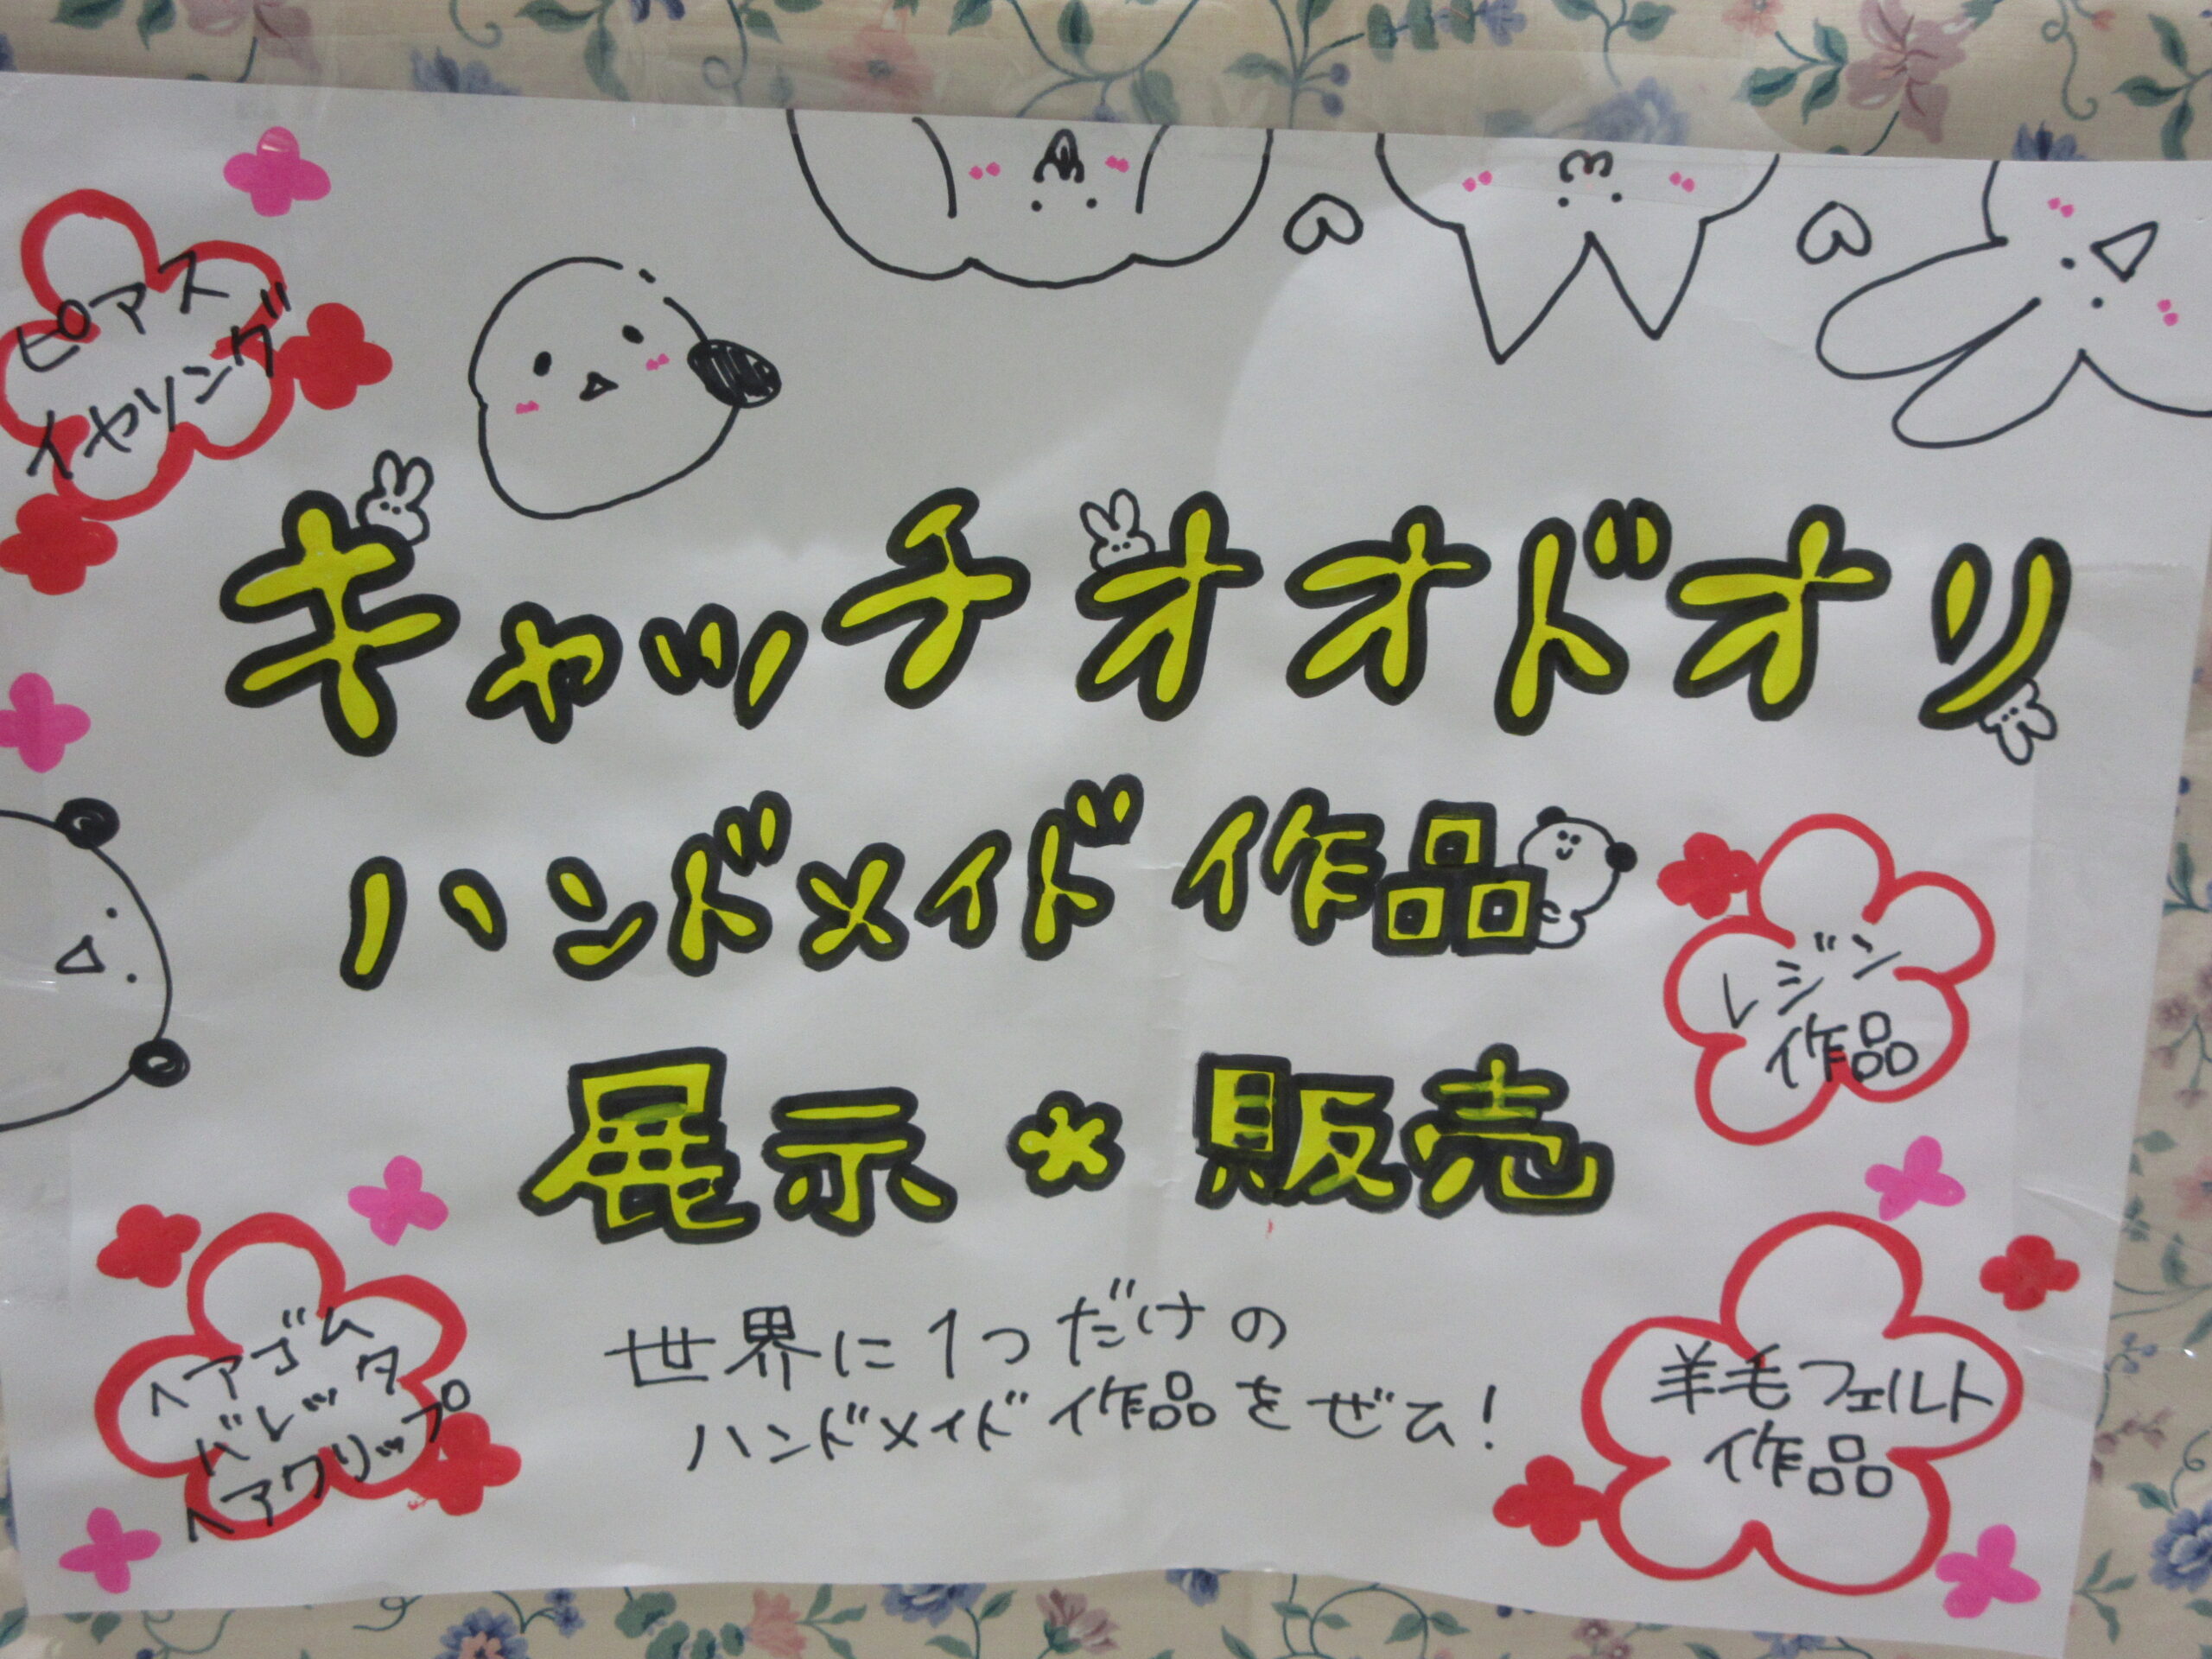 ピアス
イヤリング
キャッチオオドオリ
ハンドメイド 作品
展示 * 販売
レジン
作品
ヘアゴム
バレッタ
ヘアクリップ
世界に1つだけの
ハンドメイド作品をぜひ!
羊毛フェルト
作品